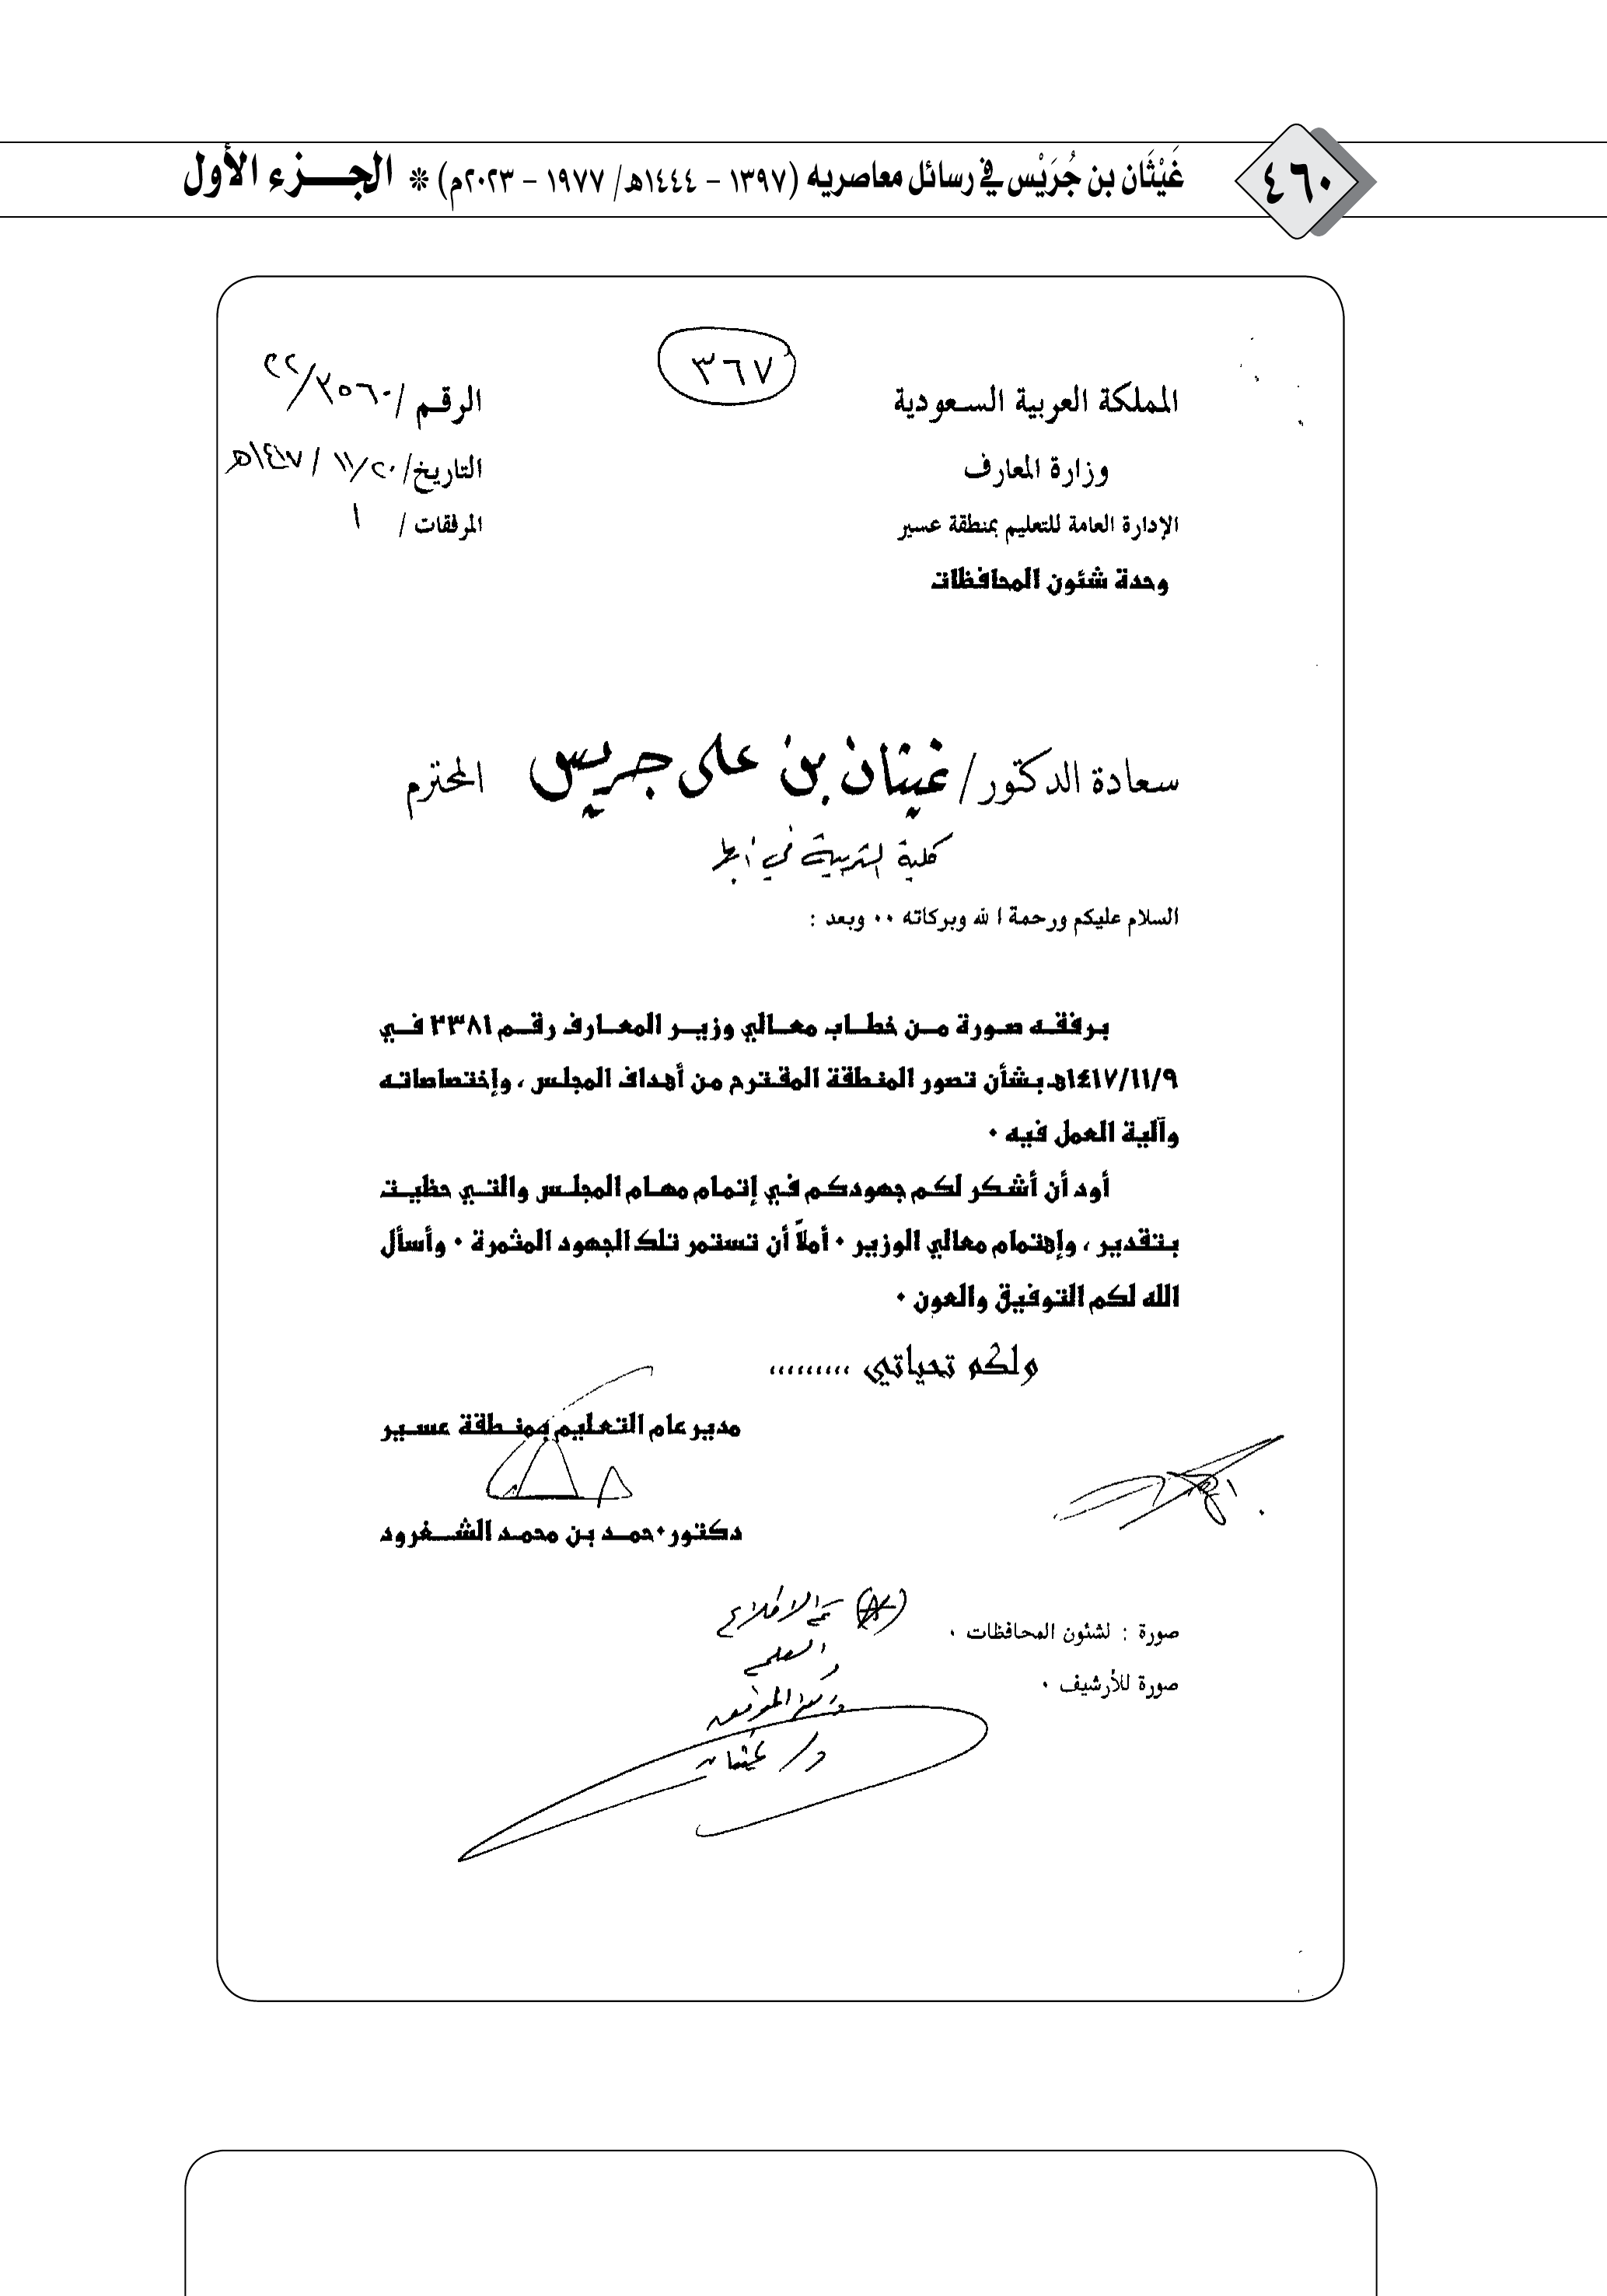 ٤٦٠
غَيْثَان بن جُرَيْس في رسائل معاصريه (١٣٩٧ - ١٤٤٤هـ/ ١٩٧٧ - ٢٠٢٣م) * الجـــزء الأول
٣٦٧
المملكة العربية السعودية
وزارة المعارف
الإدارة العامة للتعليم بمنطقة عسير
وحدة شئون المحافظات
الرقم / ٢٢/٣٥٦٠
التاريخ/ ١١/٢٠ / ١٤١٧هـ
المرفقات / ١
سعادة الدكتور/ غيثان بن على جريس المحترم
كلية التربية في أبها
السلام عليكم ورحمة ا لله وبركاته ٠٠ وبعد :
برفقـه صورة مـن خطـاب معـالي وزيـر المعـارف رقـم ٢٣٨١ فـي
١٤١٧/١١/٩هـ بشأن تصور المنطقة المقترم من أهداف المجلس ، وإختصاصاتـه
وآلية العمل فيه ٠
أود أن أشكر لكم جهودكم في إتمام مهام المجلس والتـي حظيـت
بتقدير ، وإهتمام معالي الوزير ٠ أملاً أن تستمر تلك الجهود المثمرة ٠ وأسأل
الله لكم التوفيق والعون ٠
ولكم تحياتي ،،،،،،،،،
مدير عام التعليم بمنـطقة عسـير
دكتور٠حمـد بـن محمـد الشـغرود
صورة : لشئون المحافظات ٠
صورة للأرشيف ٠
د/ غيثان